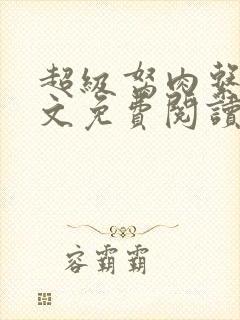 超級驽肉
文免費閱讀
容霸霸